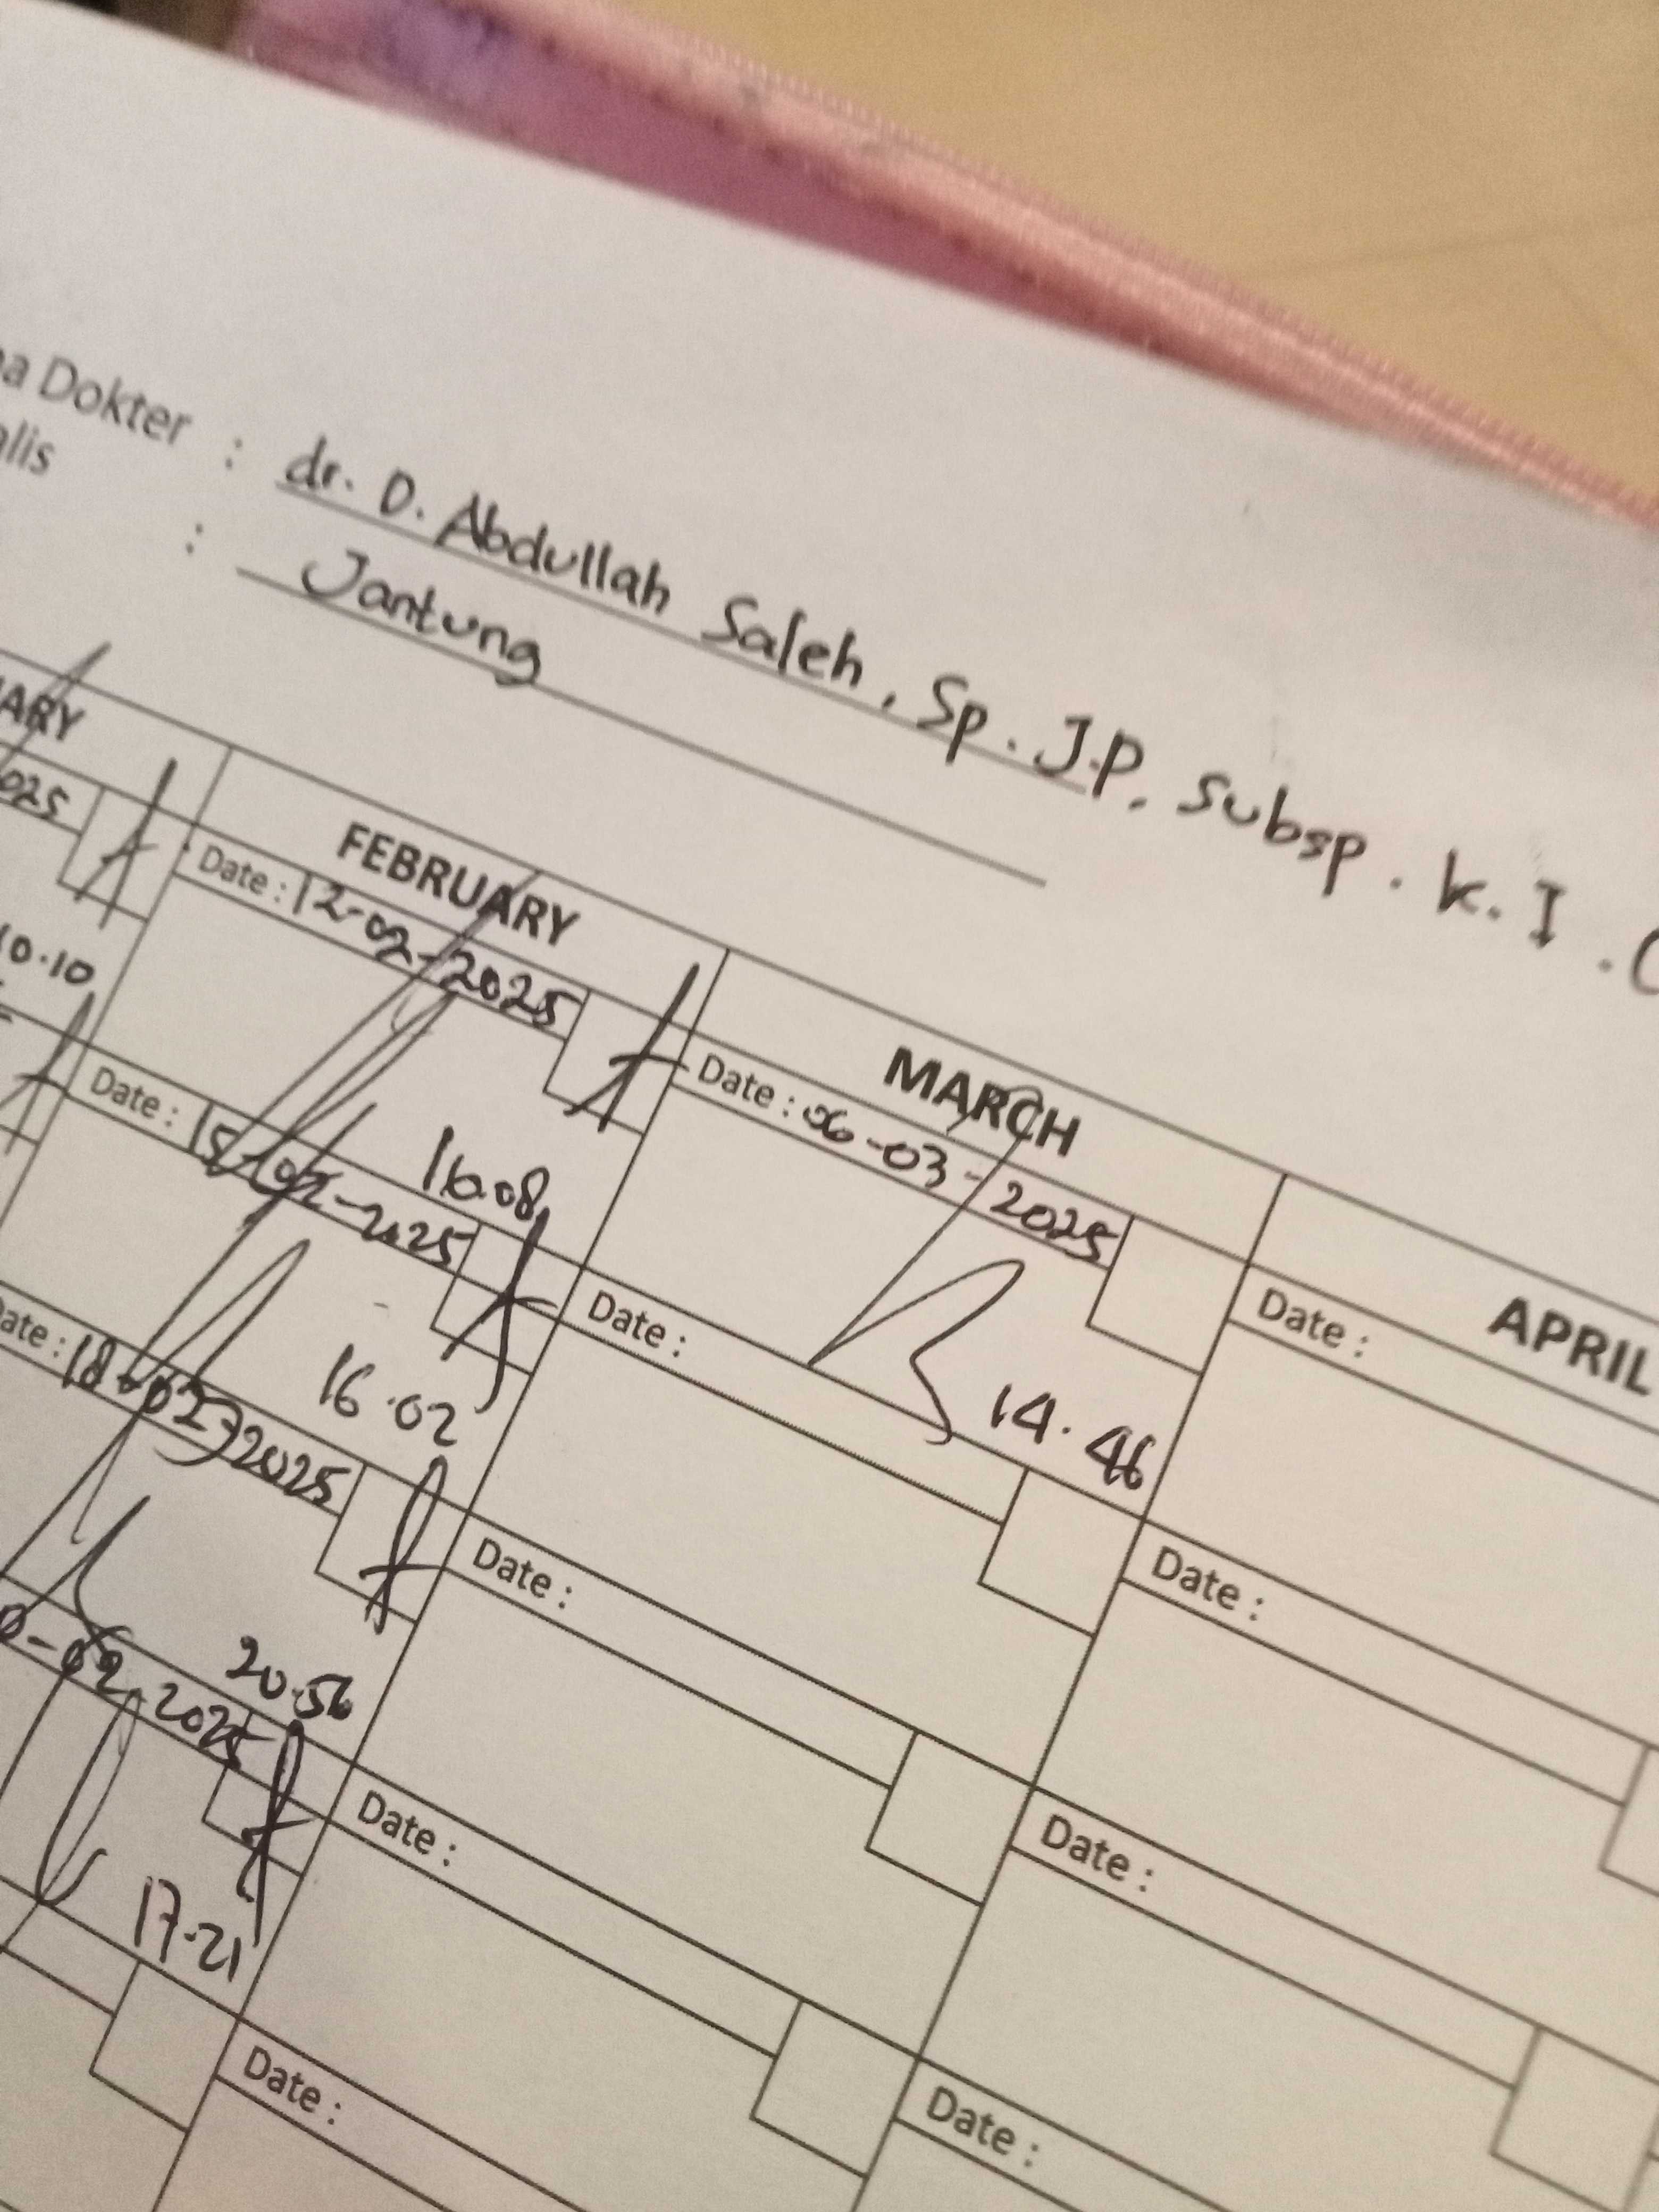 Dokter : dr. D. Abdullah Saleh, Sp. J.P, Subsp. K. I.
: Jantung
FEBRUARY MARCH APRIL
025 Date : 12-02-2025 Date : 06-03-2025 Date :
10.10 16.08 14.46
Date : 15-02-2025 Date : Date :
16.02
Date : 18-02-2025 Date : Date :
20.56
0-02-2025 Date : Date :
17.21
Date :